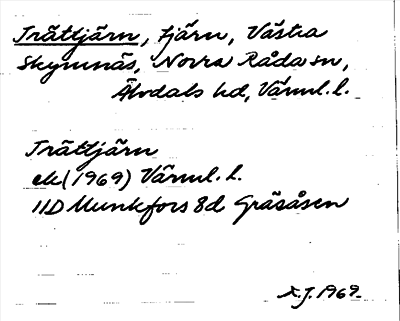 Trättjärn, tjärn, Västra
Skymnäs, Norra Råda sn,
Älvdals hd, Värml. l.
Trättjärn
ek (1969) Värml. l.
11D Munkfors 8d Gräsåsen
A.J. 1969